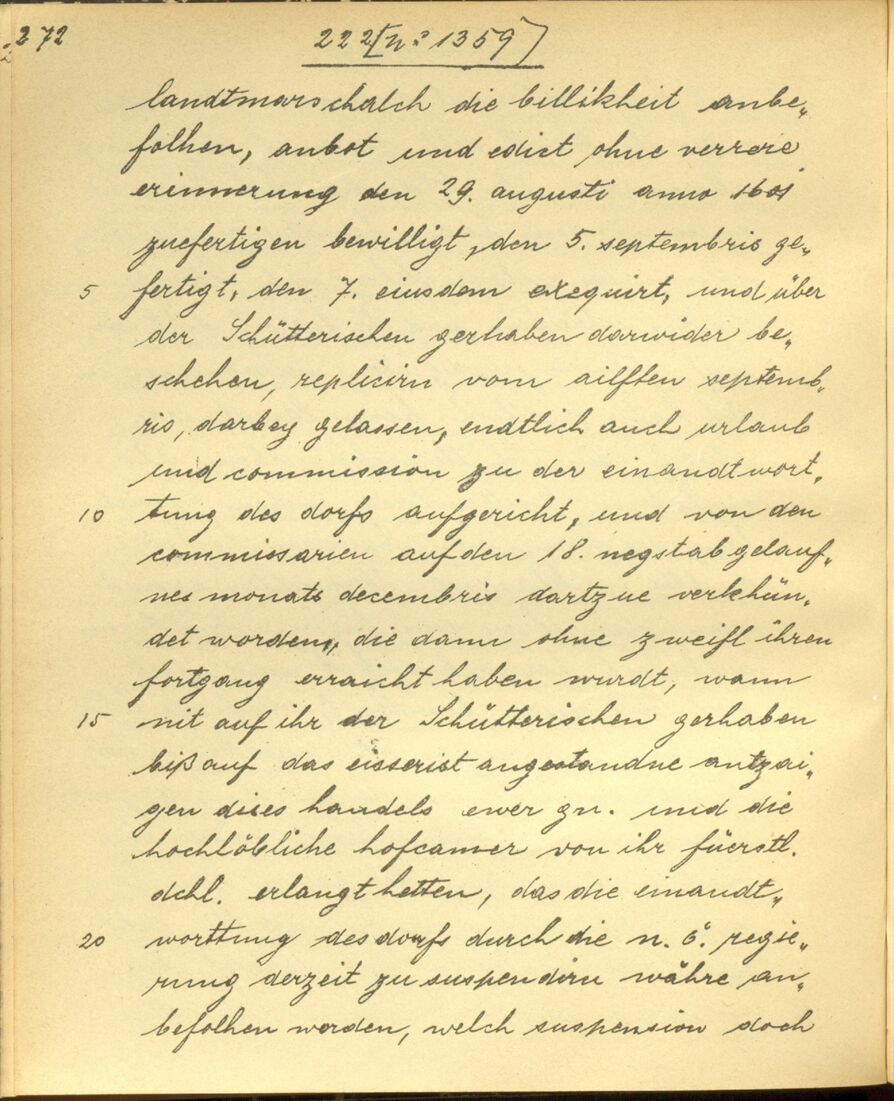 272
222 [nº 1359]
landtmarschalch die billikheit anbe„
folhen, anbot und edict ohne verrere
erinnerung den 29. augusti anno 1601
zuefertigen bewilligt, den 5. septembris ge„
5 fertigt, den 7. eiusdem exequirt, und über
der Schütterischen gerhaben darwider be„
schehen, replicirn vom ailften septemb„
ris, darbey gelassen, endtlich auch urlaub
und commission zu der einandtwort„
10 tung des dorfs aufgericht, und von den
commissarien auf den 18. negstabgelauf„
nes monats decembris dartzue verkhün„
det worden, die dann ohne zweifl ihren
fortgang erraicht haben wurdt, wann
15 nit auf ihr der Schütterischen gerhaben
biß auf das eisserist angestandne antzai„
gen dises handels ewer gn. und die
hochlöbliche hofcamer von ihr füerstl.
dchl. erlangt hetten, das die einandt„
20 worttung des dorfs durch die n. ö. regie„
rung derzeit zu suspendirn währe an„
befolhen worden, welch suspension doch